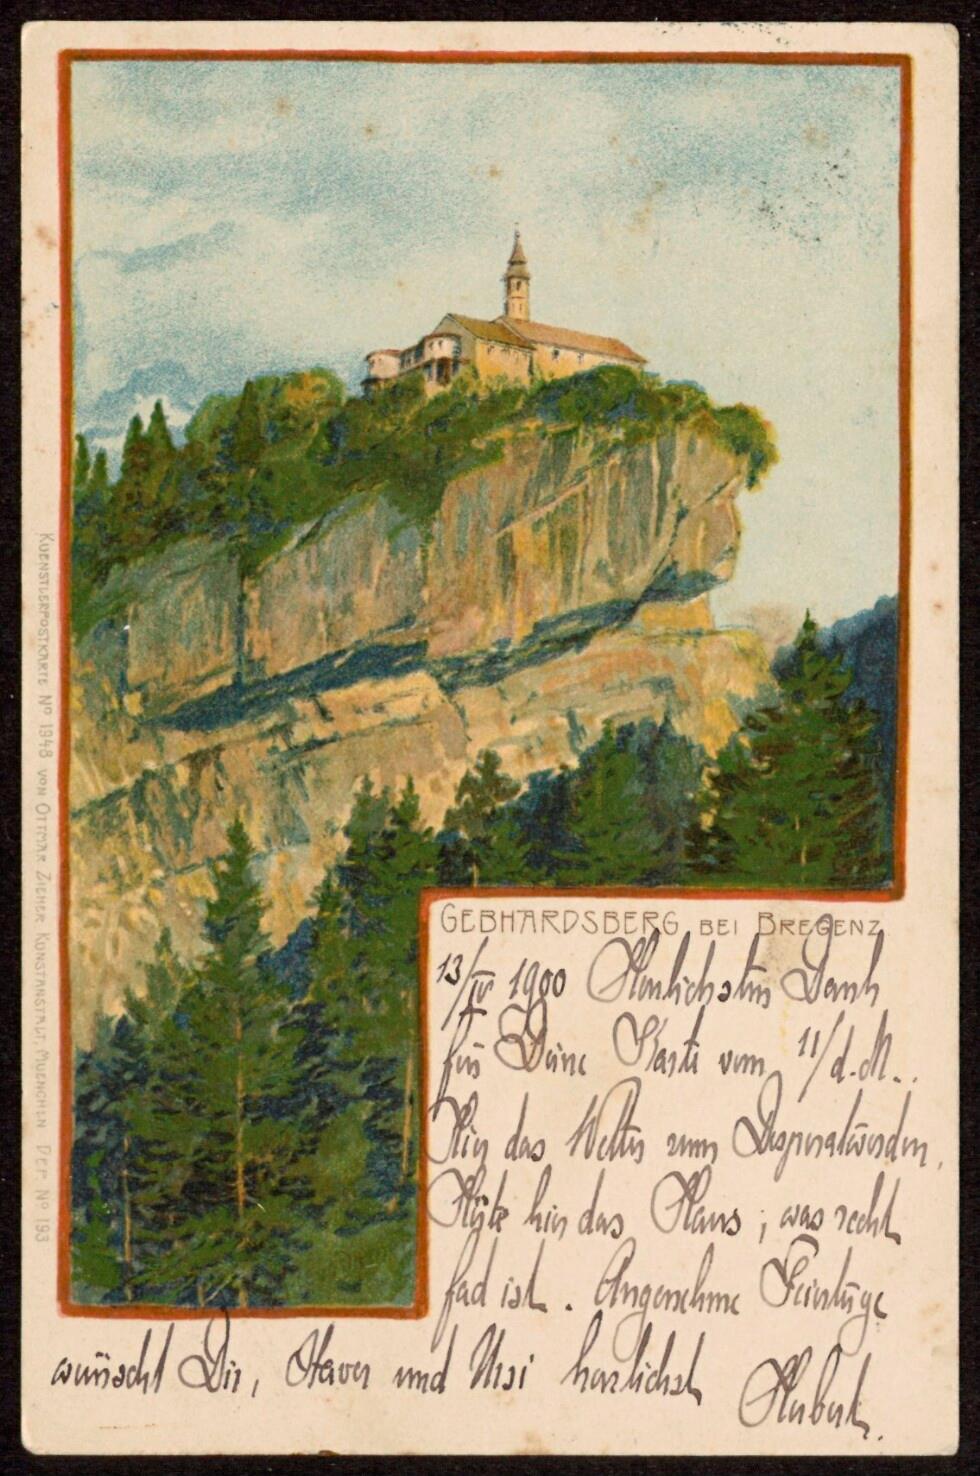 GEBHARDSBERG BEI BREGENZ
13/IV 1900 Herzlichsten Dank
für Deine Karte vom 11/d.M..
Hier das Wetter zum Desperatwerden.
Hüte hier das Haus, was recht
fad ist. Angenehme Feiertage
wünscht Dir, und Ursi herzlichst
Hubert.
KUENSTLERPOSTKARTE Nº 1948 VON OTTMAR ZIEHER KUNSTANSTALT, MUENCHEN DEP. Nº 193